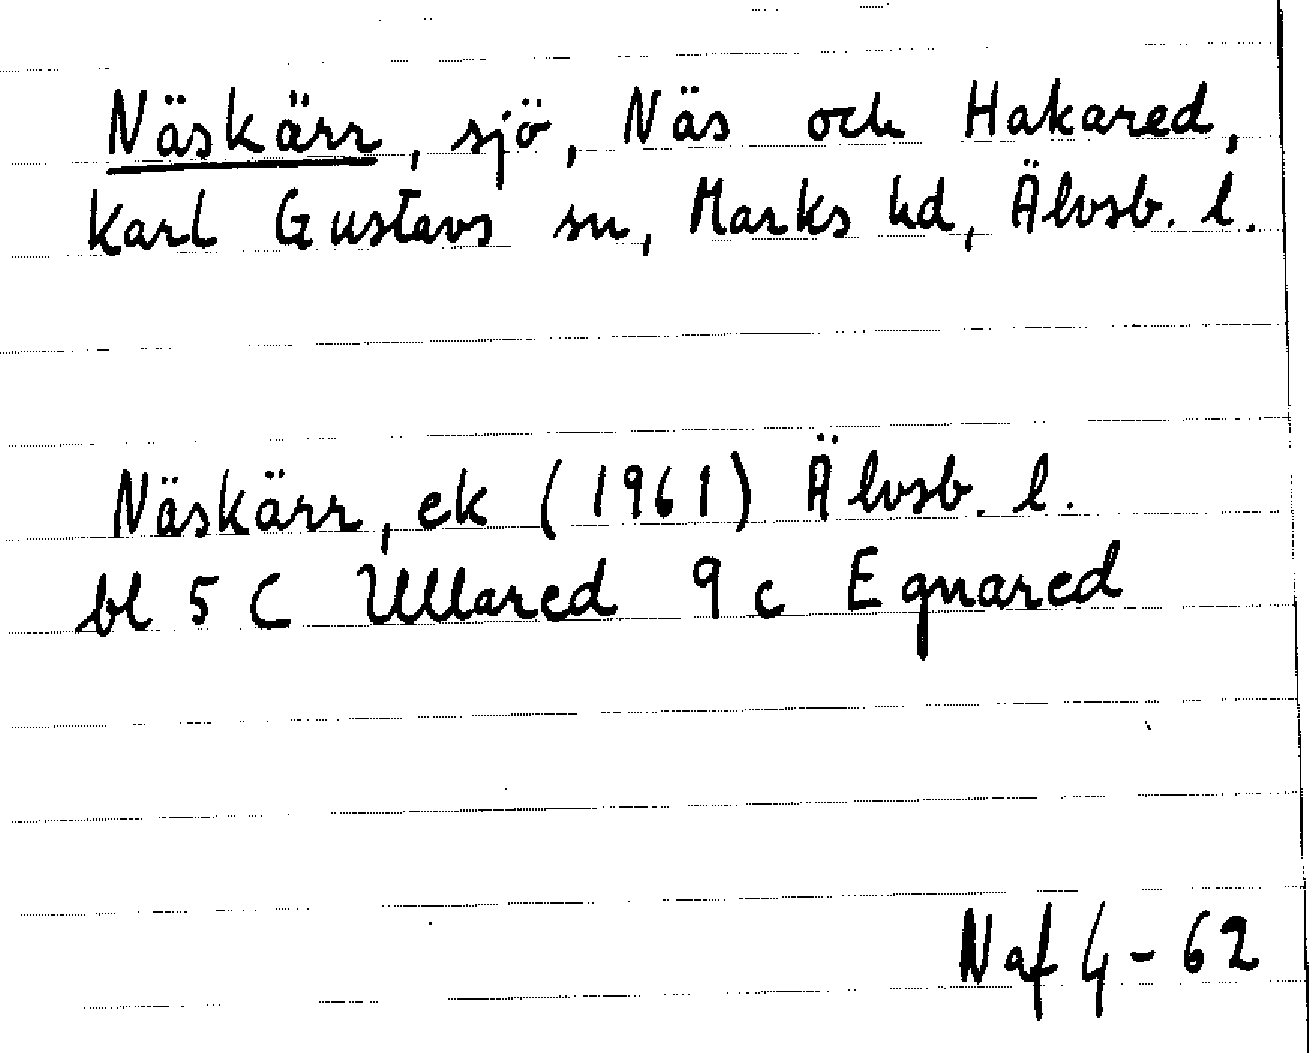 Näskärr, sjö, Näs och Hakared,
Karl Gustavs sn, Marks hd, Älvsb. l.
Näskärr, ek (1961) Älvsb. l.
bl 5 C Ullared 9 c Eqnared
Naf 4-62